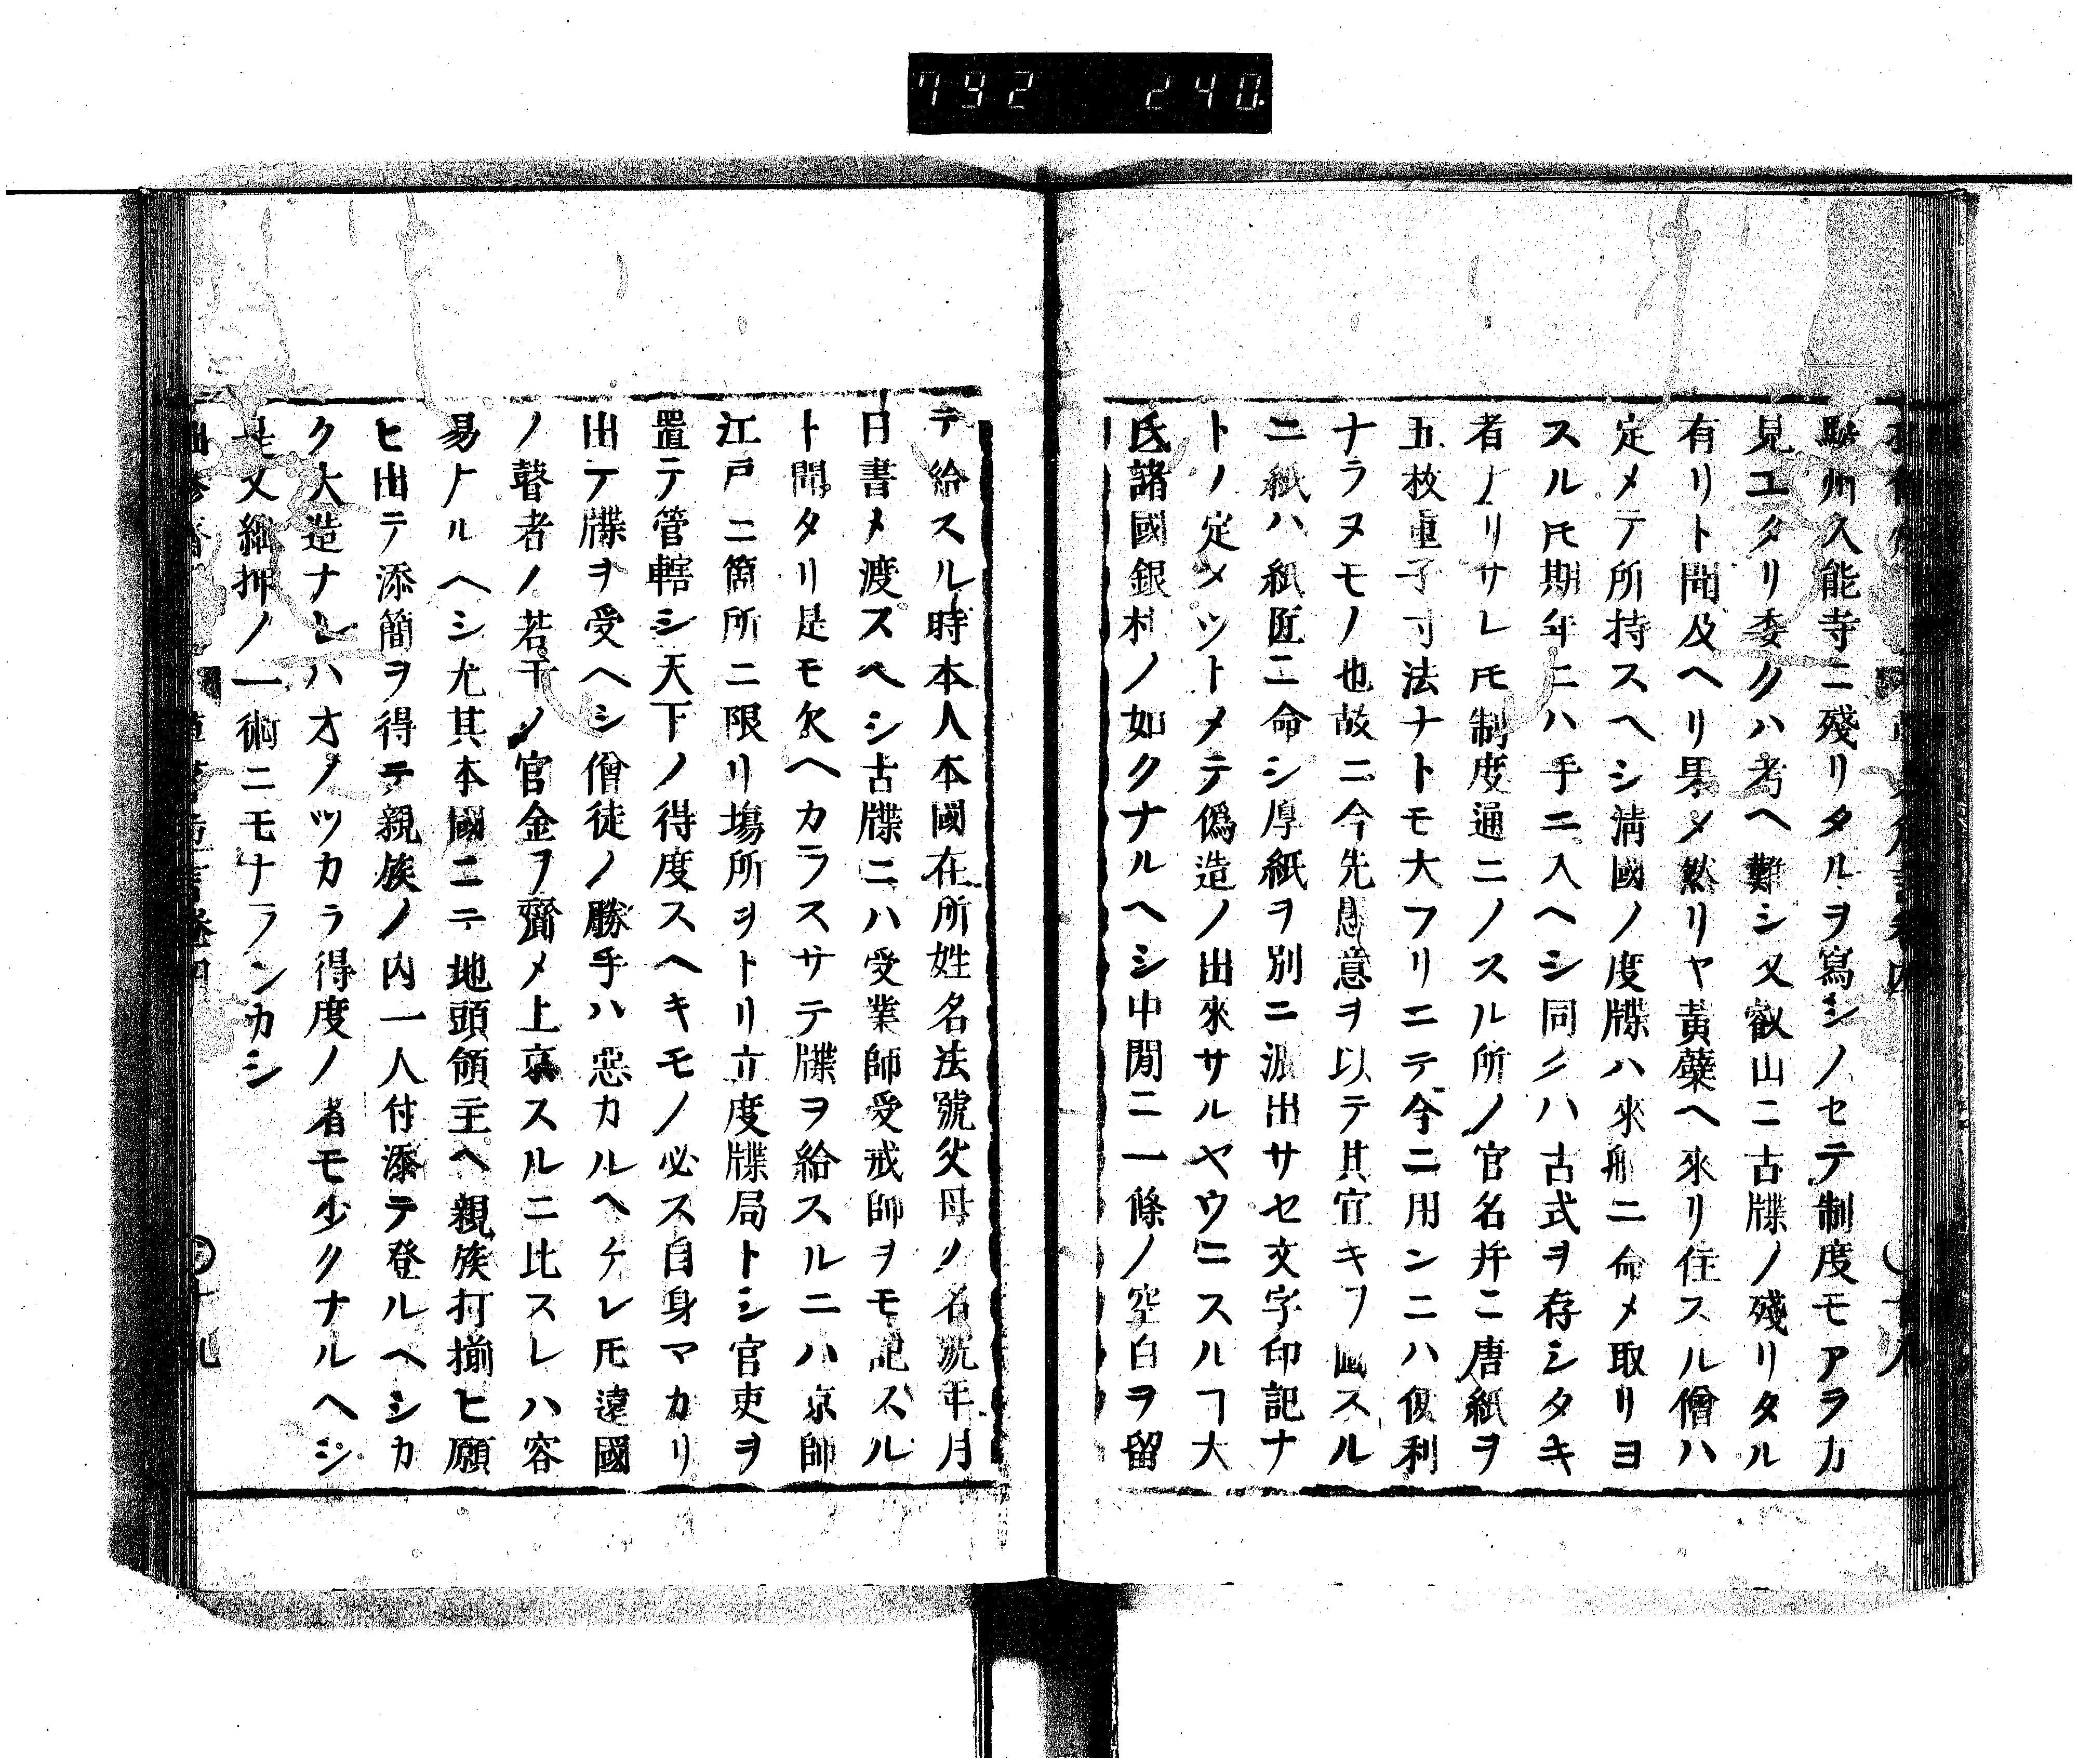 792 240.
駿州久能寺ニ殘リタルヲ寫シノセテ制度モアラカ
見エタリ委クハ考ヘ難シ又叡山ニ古牒ノ殘リタル
有リト聞及ヘリ果メ然リヤ黃蘗ヘ來リ住スル僧ハ
定メテ所持スヘシ淸國ノ度牒ハ來舶ニ命メ取リヨ
スル𪜈期年ニハ手ニ入ヘシ同クハ古式ヲ存シタキ
者ナリサレ𪜈制度通ニノスル所ノ官名幷ニ唐紙ヲ
五枚重子寸法ナトモ大フリニテ今ニ用ンニハ復利
ナラヌモノ也故ニ今先愚意ヲ以テ其宜キヲ圖スル
ニ紙ハ紙匠ニ命シ厚紙ヲ別ニ漉出サセ文字印記ナ
トノ定メツトメテ僞造ノ出來サルヤウニスルヿ大
氐諸國銀札ノ如クナルヘシ中間ニ一條ノ空白ヲ留
テ給スル時本人本國在所姓名法號父母ノ名號年月
日書メ渡スヘシ古牒ニハ受業師受戒師ヲモ記スル
ト聞タリ是モ欠ヘカラスサテ牒ヲ給スルニハ京師
江戸ニ箇所ニ限リ場所ヲトリ立度牒局トシ官吏ヲ
置テ管轄シ天下ノ得度スヘキモノ必ス自身マカリ
出テ牒ヲ受ヘシ僧徒ノ勝手ハ惡カルヘケレ𪜈遠國
ノ瞽者ノ若干ノ官金ヲ齎メ上京スルニ比スレハ容
易ナルヘシ尤其本國ニテ地頭領主ヘ親族打揃ヒ願
ヒ出テ添簡ヲ得テ親族ノ内一人付添テ登ルヘシカ
ク大造ナレハオノツカラ得度ノ者モ少クナルヘシ
是又細抑ノ一術ニモナランカシ